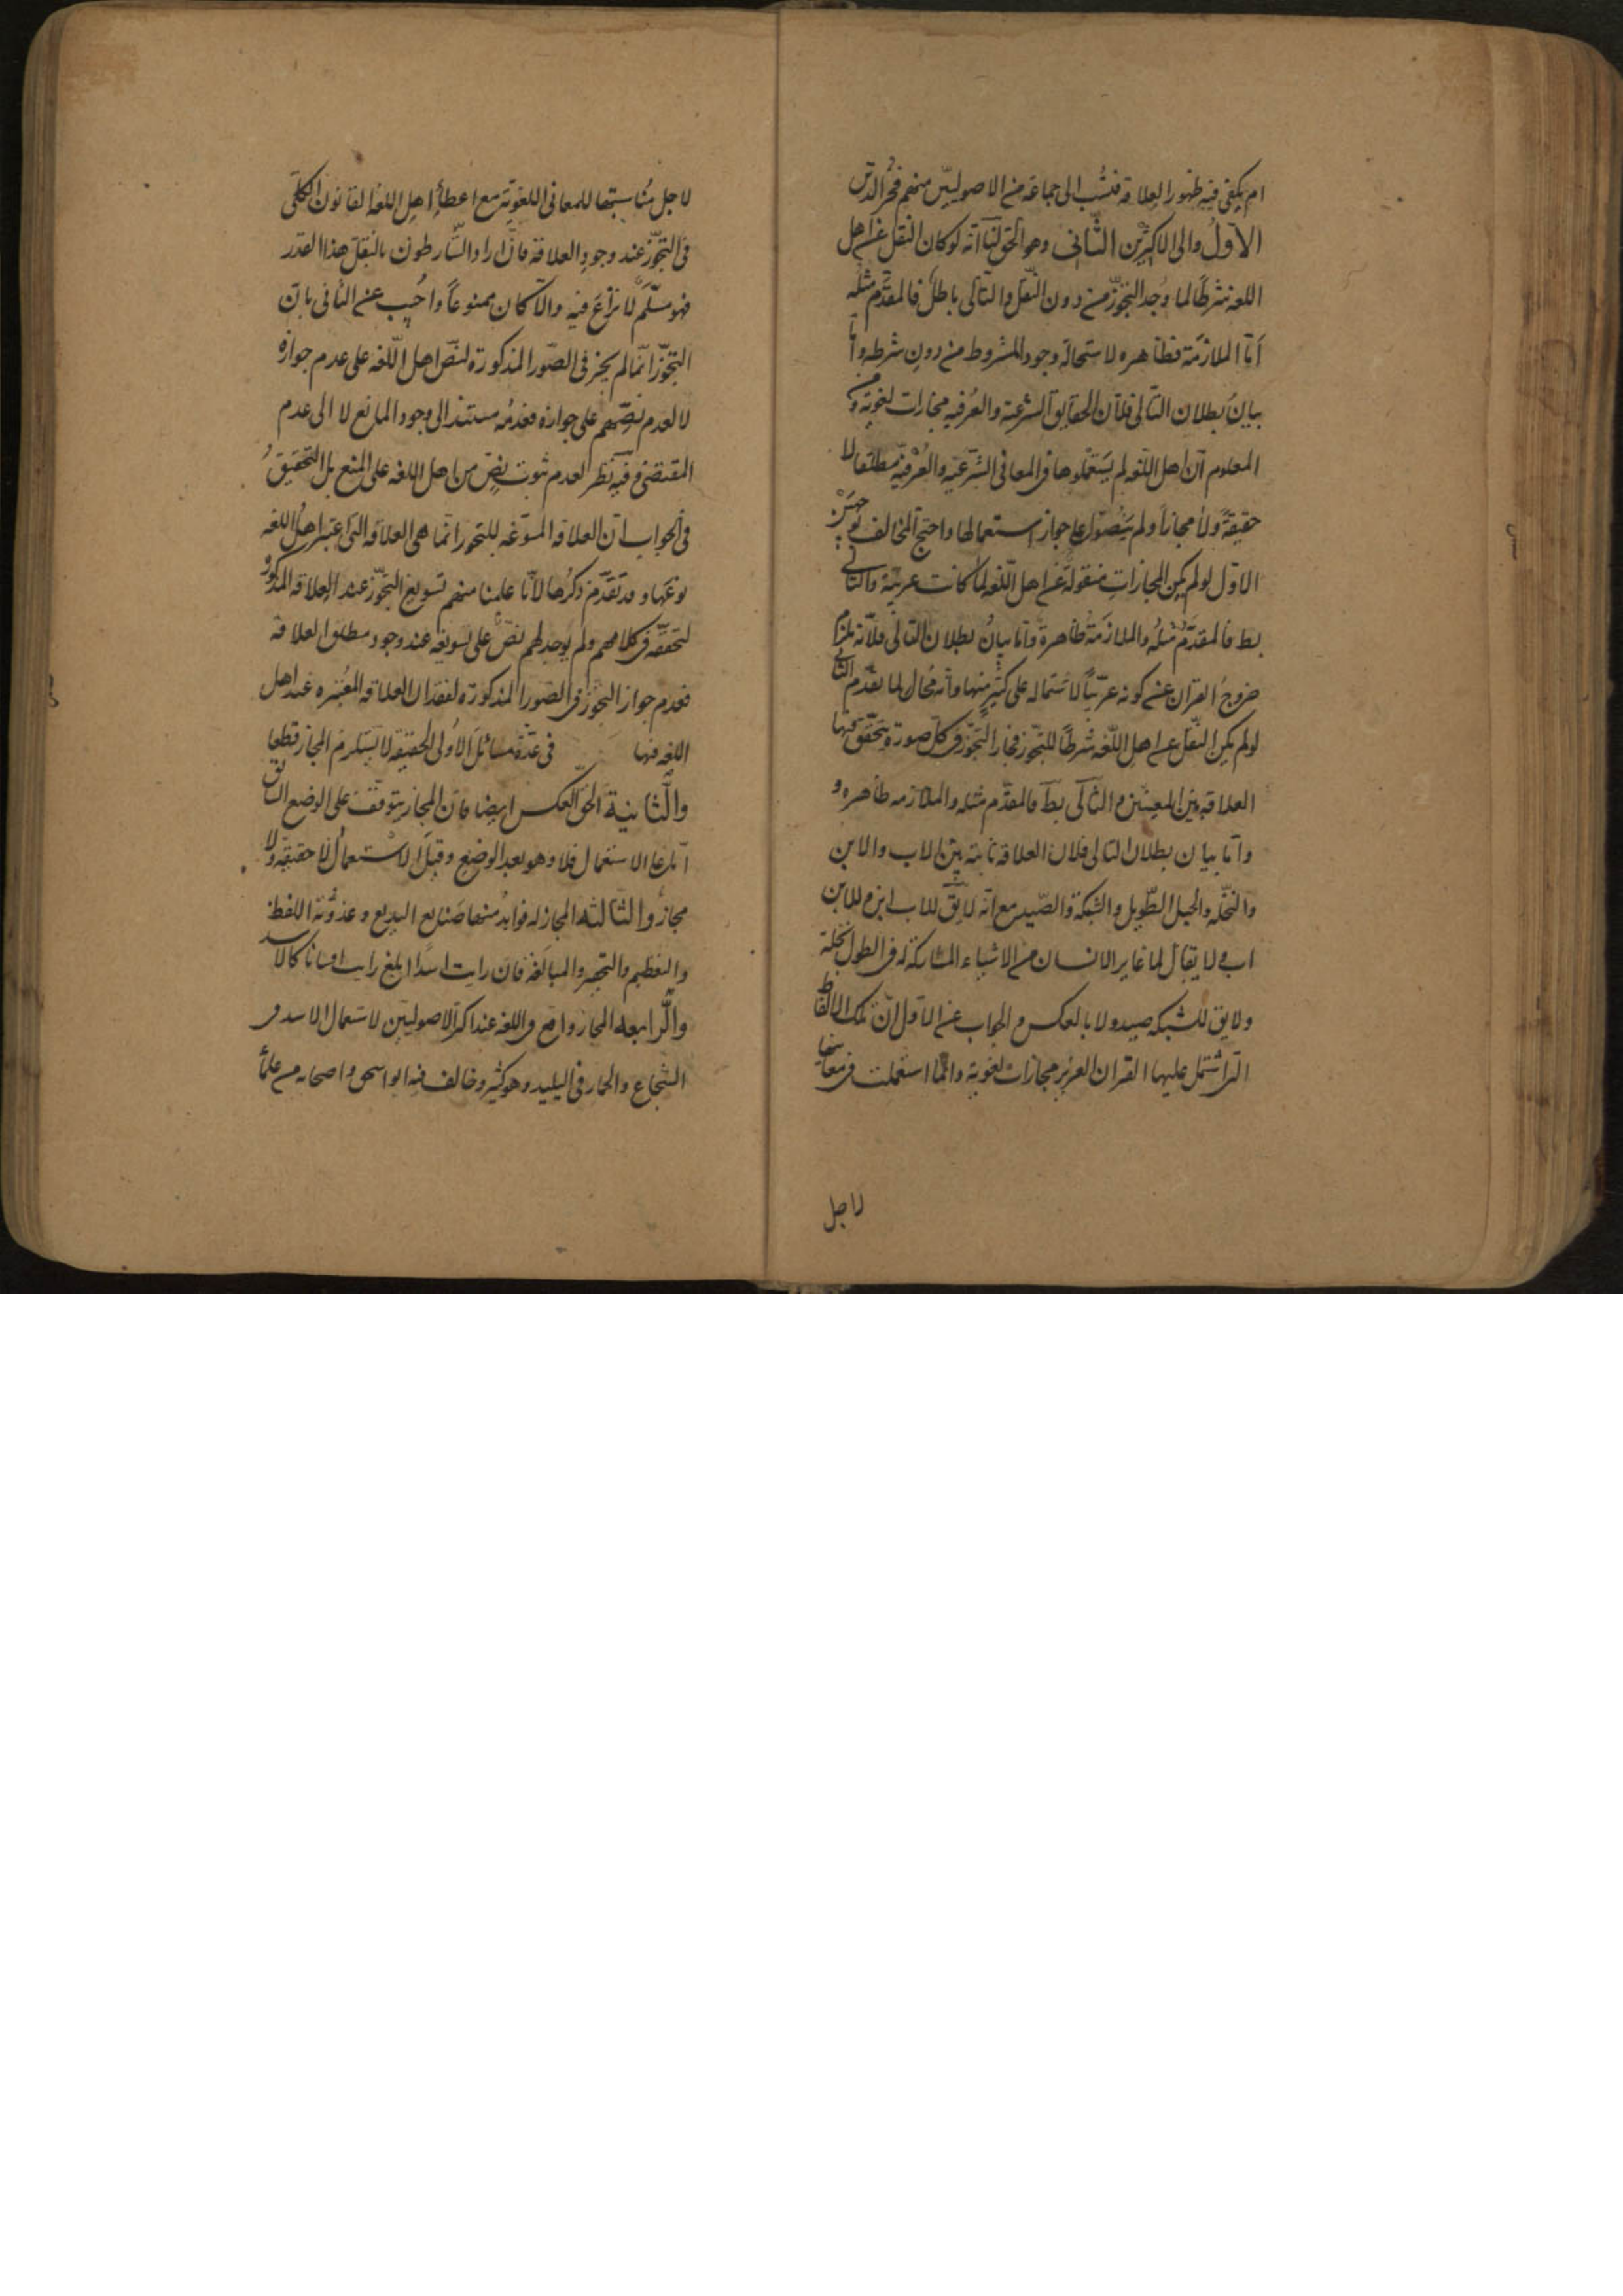 ام يكفى فيه ظهور العلاقة فنسب الى جماعة من الاصوليين منهم فخر الدين
الاول والى الاكثرين الثانى وهو الحق لنا انه لو كان النقل عن اهل
اللغه شرطا لما وجد التجوز من دون النقل والتالى باطل فالمقدم مثله
اما الملازمة فظاهره لاستحالة وجود المشروط من دون شرطه واما
بيان بطلان التالى فلان الحقايق الشرعية والعرفيه مجازات لغوية و
المعلوم ان اهل اللغه لم يستعملوها فى المعانى الشرعية والعرفية مطلقا لا
حقيقة ولا مجازا ولم ينصوا على جواز استعمالها واحتج المخالف بوجهين
الاول لو لم يكن المجازات منقولة عن اهل اللغه لما كانت عربية والتالى
بط فالمقدم مثله والملازمة ظاهرة واما بيان بطلان التالى فلانه يلزم
خروج القران عن كونه عربيا لاشتماله على كثير منها وانه محال لما تقدم الثانى
لو لم يكن النقل عن اهل اللغه شرطا للتجوز فجاز التجوز فى كل صورة يتحقق فيها
العلاقة بين المعينين والتالى بط فالمقدم مثله والملازمه ظاهره و
واما بيان بطلان التالى فلان العلاقة ثابتة بين الاب والابن
والنخله والحبل الطويل والشبكة والصيد مع انه لا يق للاب ابن و للابن
اب ولا يقال لما غاير الانسان من الاشياء المشاركة له فى الطول نخلة
ولا يق للشبكه صيد ولا بالعكس و الجواب عن الاول ان تلك الالفاظ
التى اشتمل عليها القران العزيز مجازات لغوية وانما استعملت فى معانيها
لاجل
لاجل مناسبتها للمعانى اللغوية مع اعطاء اهل اللغه القانون الكلى
فى التجوز عند وجود العلاقة فان اراد الشارطون بالنقل هذا القدر
فهو مسلم لا نزاع فيه والا كان ممنوعا واجيب عن الثانى بان
التجوز انما لم يجز فى الصور المذكورة لنص اهل اللغه على عدم جوازه
لا لعدم نصهم على جوازه فعدمه مستند الى وجود المانع لا الى عدم
المقتضى وفيه نظر لعدم ثبوت نص من اهل اللغه على المنع بل التحقيق
فى الجواب ان العلاقه المسوغه للتجوز انما هى العلاقه التى اعتبر اهل اللغه
نوعها و قد تقدم ذكرها لانا علمنا منهم تسويغ التجوز عند العلاقه المذكور
لتحققه فى كلامهم ولم يوجد لهم نص على تسويغه عند وجود مطلق العلاقة
فعدم جواز التجوز فى الصور المذكورة لفقدان العلاقه المعتبره عند اهل
اللغه فيها فى عدة مسائل الاولى الحقيقة لا يستلزم المجاز قطعا
والثانية الحق العكس ايضا فان المجاز يتوقف على الوضع السابق
اما على الاستعمال فلا وهو بعد الوضع وقبل الاستعمال لا حقيقه ولا
مجاز والثالثه المجاز له فوايد منها صنايع البديع و عذوبة اللفظ
والتعظيم والتحقير والمبالغة فان رايت اسدا ابلغ رايت انسانا كالاسد
والرابعه المجاز واقع فى اللغه عند اكثر الاصوليين لاستعمال الاسد فى
الشجاع والحمار فى البليد وهو كثير وخالف فيه ابو اسحق واصحابه من علماء